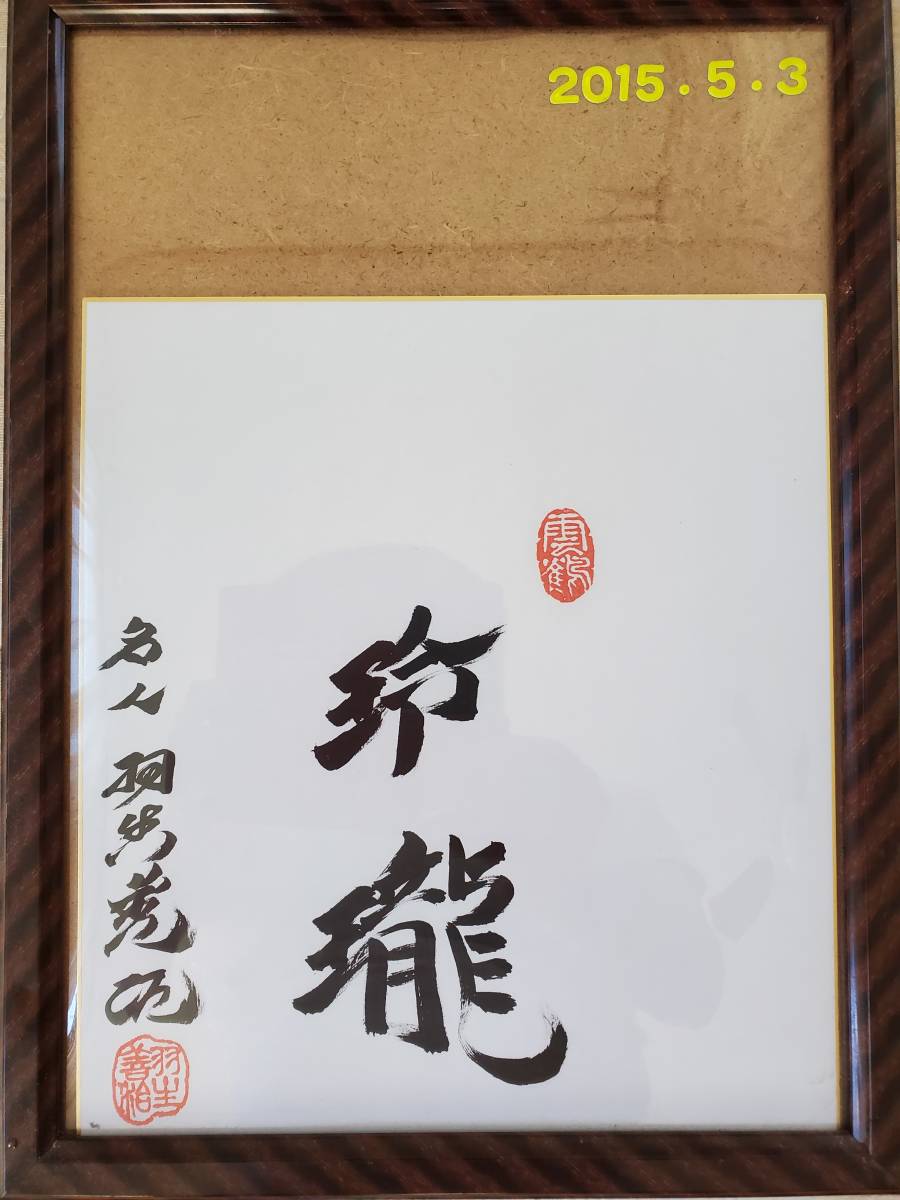 2015.5.3
雲鶴
玲瓏
名人 羽生善治
羽生善治